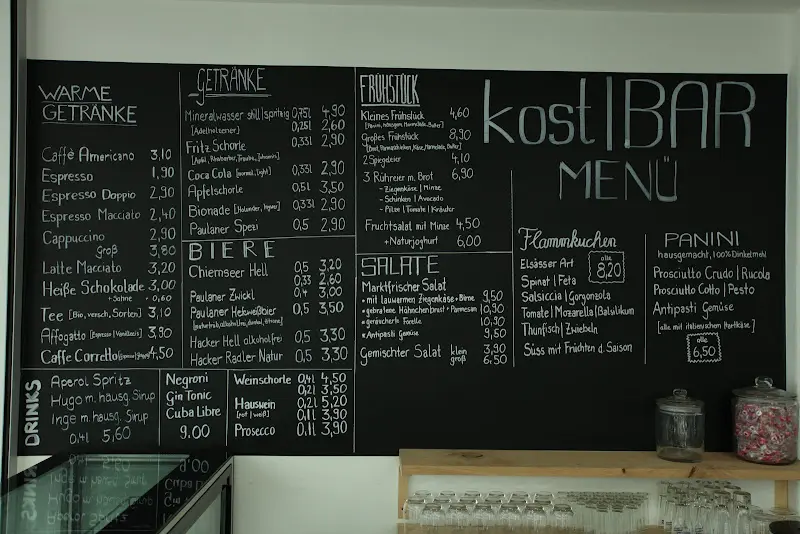 WARME
GETRÄNKE
Caffè Americano 3,10
Espresso 1,90
Espresso Doppio 2,90
Espresso Macciato 2,40
Cappuccino 2,90
Groß 3,80
Latte Macciato 3,20
Heiße Schokolade 3,00
+Sahne +0,60
Tee [Bio, versch. Sorten] 3,10
Affogatto [Espresso | Vanilleeis] 3,90
Caffe Corretto 4,50
GETRÄNKE
Mineralwasser still | spritzig 0,75l 4,90
[Adelholzener] 0,25l 2,60
Fritz Schorle 0,33l 2,90
[Apfel, Rhabarber, Traube, Johannis]
Coca Cola [normal, light] 0,33l 2,90
Apfelschorle 0,5l 3,50
Bionade [Holunder, Ingwer] 0,33l 2,90
Paulaner Spezi 0,5 2,90
BIERE
Chiemseer Hell 0,5 3,20
0,33 2,60
Paulaner Zwickl 0,4 3,00
Paulaner Hefeweißbier 0,5 3,50
[naturtrüb, alkoholfrei, dunkel, Zitrone]
Hacker Hell alkoholfrei 0,5 3,30
Hacker Radler Natur 0,5 3,30
FRÜHSTÜCK
Kleines Frühstück 4,60
Großes Frühstück 8,90
[Brot, Parmaschinken, Käse, Marmelade, Butter]
2 Spiegeleier 4,10
3 Rühreier m. Brot 6,90
- Ziegenkäse | Minze
- Schinken | Avocado
- Pilze | Tomate | Kräuter
Fruchtsalat mit Minze 4,50
+ Naturjoghurt 6,00
SALATE
Marktfrischer Salat
• mit lauwarmen Ziegenkäse + Birne 9,50
• gebratene Hähnchenbrust + Parmesan 10,90
• geräucherte Forelle 10,90
• Antipasti Gemüse 9,50
Gemischter Salat klein 3,90
groß 6,50
kost|BAR
MENÜ
Flammkuchen
alle
8,20
Elsässer Art
Spinat | Feta
Salsiccia | Gorgonzola
Tomate | Mozarella | Basilikum
Thunfisch | Zwiebeln
Süss mit Früchten d. Saison
PANINI
hausgemacht, 100% Dinkelmehl
Prosciutto Crudo | Rucola
Prosciutto Cotto | Pesto
Antipasti Gemüse
[alle mit italienischen Hartkäse]
alle
6,50
DRINKS
Aperol Spritz
Hugo m. hausg. Sirup
Inge m. hausg. Sirup
0,4l 5,60
Negroni
Gin Tonic
Cuba Libre
9.00
Weinschorle 0,4l 4,50
0,2l 3,50
Hauswein 0,2l 5,20
[rot | weiß] 0,1l 3,90
Prosecco 0,1l 3,90